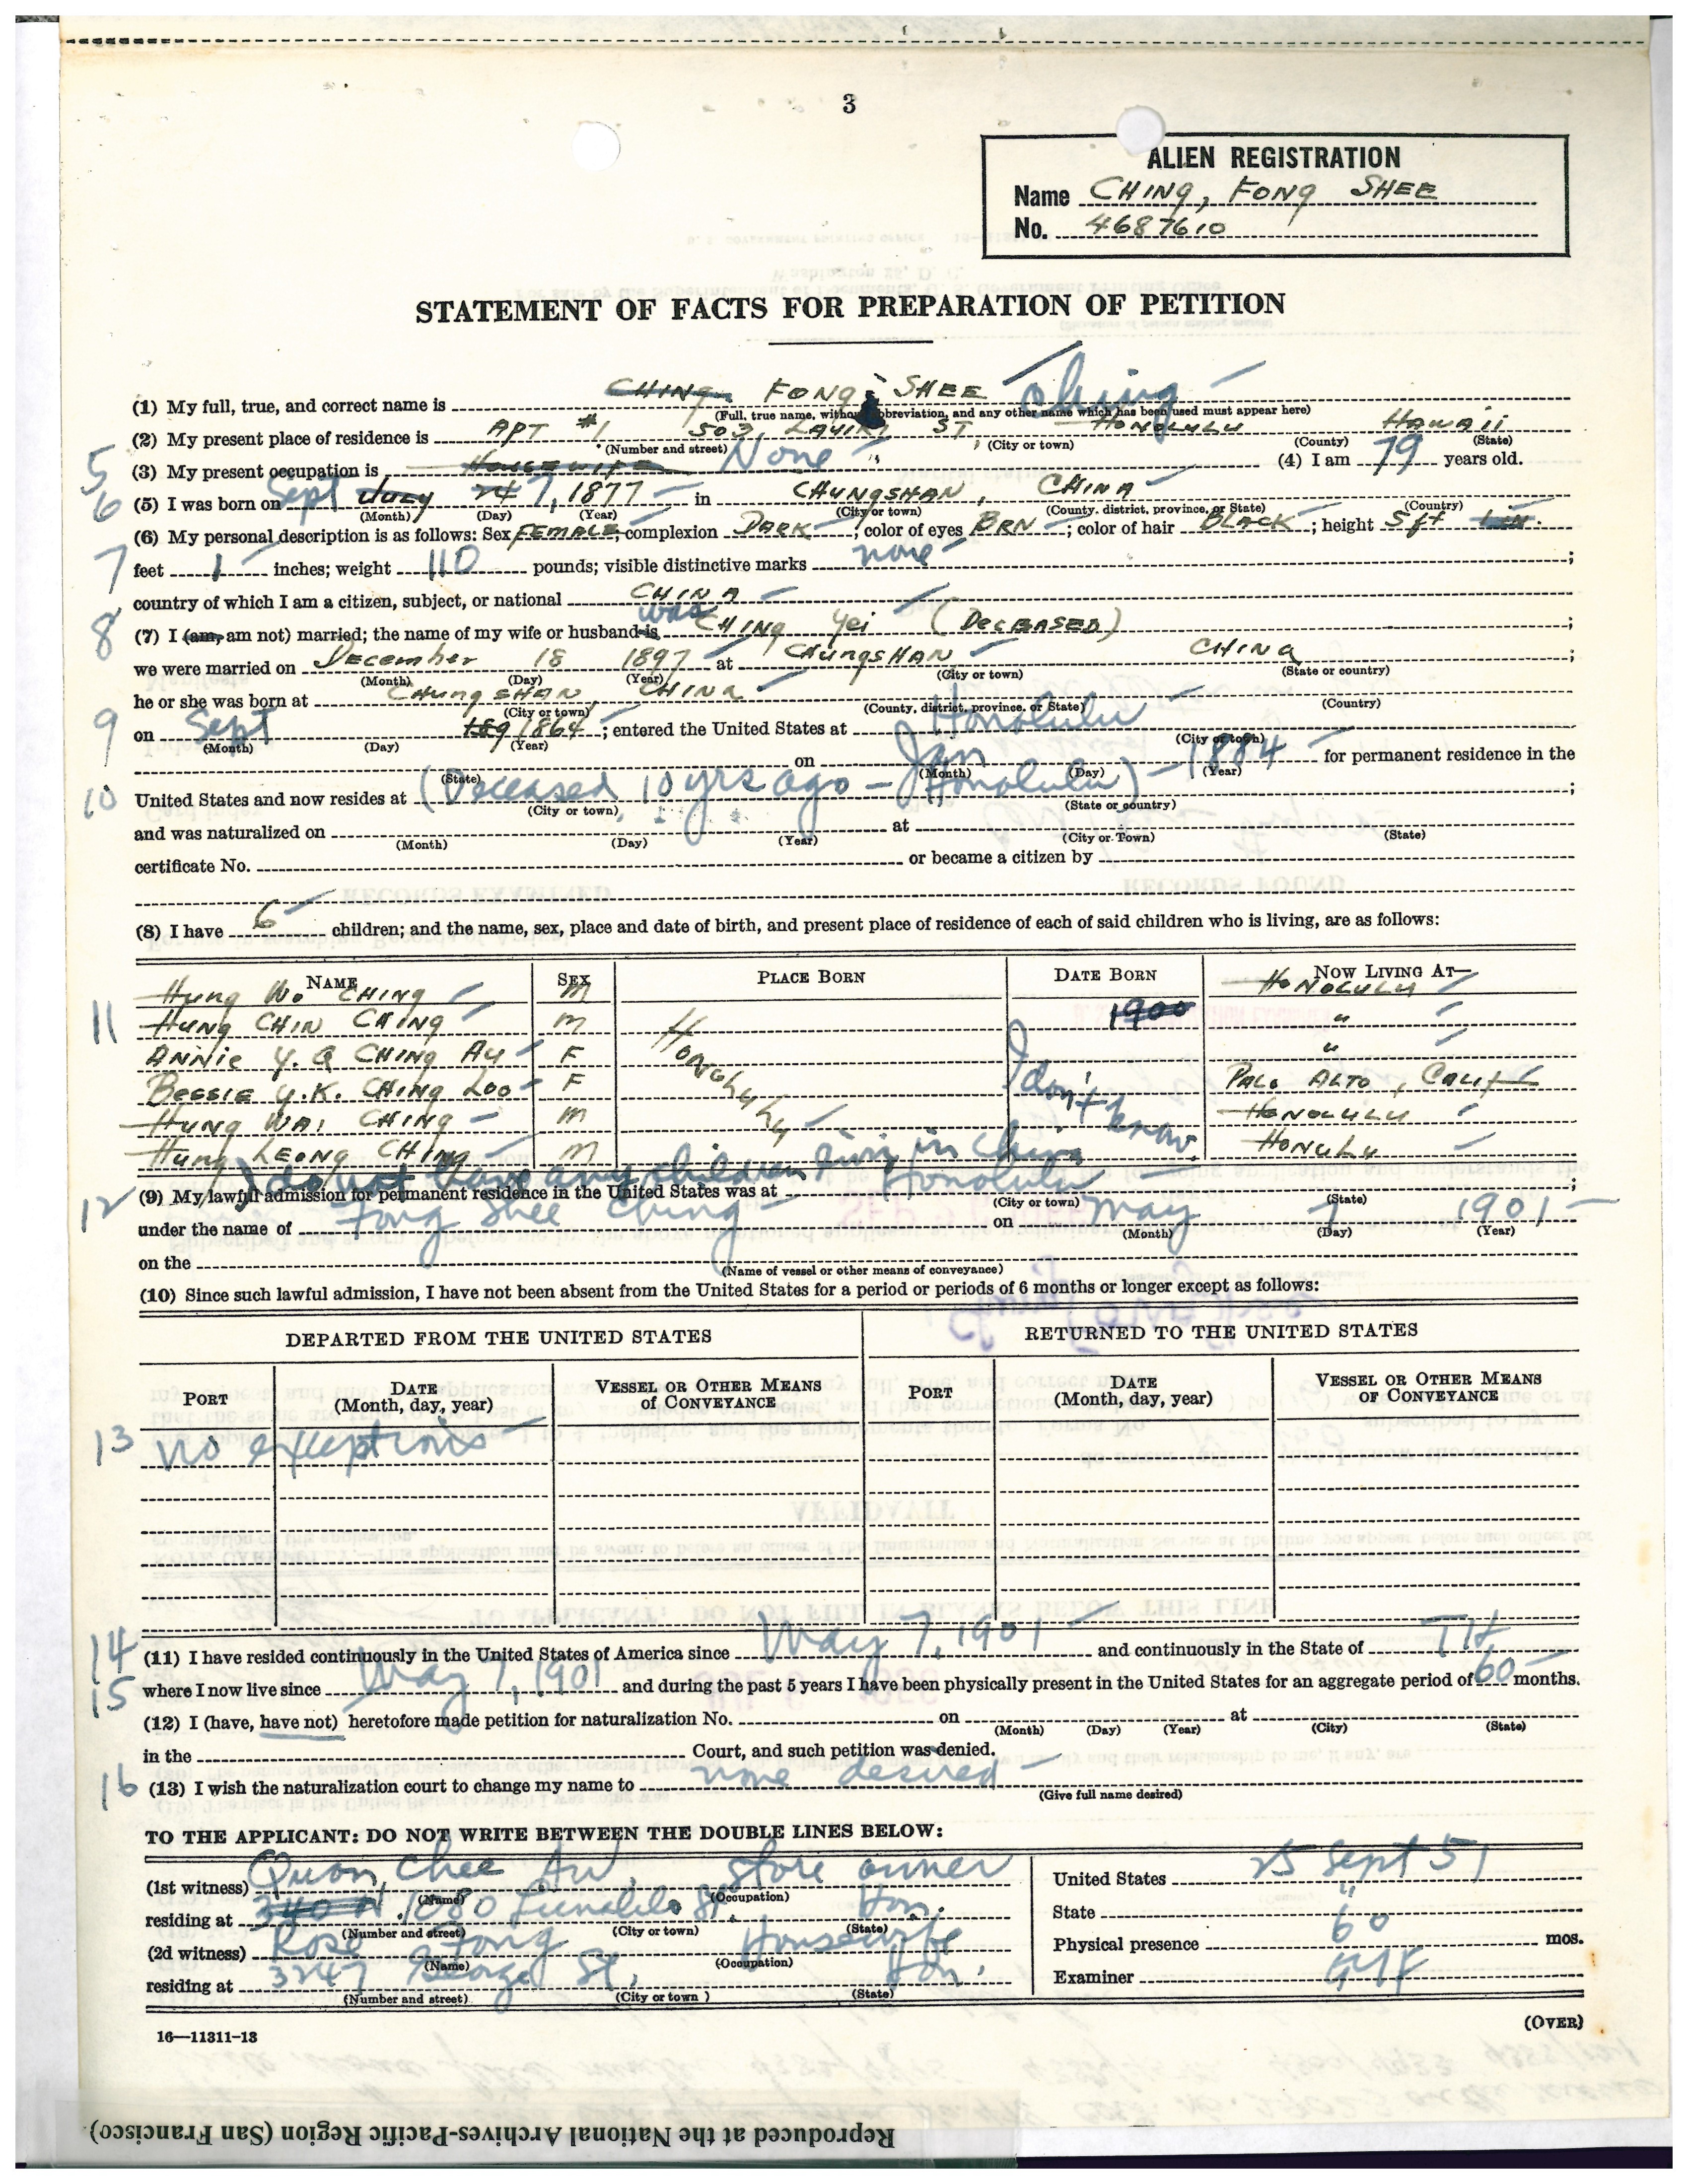 3
ALIEN REGISTRATION
Name CHING, FONG SHEE
No. 4687610
STATEMENT OF FACTS FOR PREPARATION OF PETITION
(1) My full, true, and correct name is CHING FONG SHEE Ching
(Full, true name, without abbreviation, and any other name which has been used must appear here)
(2) My present place of residence is APT #1 503 ST HONOLULU HAWAII
(Number and street) (City or town) (County) (State)
(3) My present occupation is HOUSEWIFE None (4) I am 79 years old.
5
(5) I was born on Sept JULY 24 7, 1877 in CHUNGSHAN, CHINA
6
(Month) (Day) (Year) (City or town) (County, district, province, or State) (Country)
(6) My personal description is as follows: Sex FEMALE; complexion DARK; color of eyes BRN; color of hair BLACK; height 5 ft
7
feet 1 inches; weight 110 pounds; visible distinctive marks none;
country of which I am a citizen, subject, or national CHINA
8
(7) I (am, am not) married; the name of my wife or husband is was CHING Yei (DECEASED);
we were married on December 18 1897 at CHUNGSHAN CHINA;
(Month) (Day) (Year) (City or town) (State or country)
he or she was born at CHUNGSHAN CHINA
(City or town) (County, district, province, or State) (Country)
9
on Sept 1864; entered the United States at Honolulu
(Month) (Day) (Year) (City or town)
on Jan 1884 for permanent residence in the
(State) (Month) (Day) (Year)
10
United States and now resides at (Deceased 10 yrs ago - Honolulu);
(City or town) (State or country)
and was naturalized on at
(Month) (Day) (Year) (City or Town) (State)
certificate No. or became a citizen by
(8) I have 6 children; and the name, sex, place and date of birth, and present place of residence of each of said children who is living, are as follows:
NAME SEX PLACE BORN DATE BORN NOW LIVING AT—
Hung Wo CHING M HONOLULU
11
HUNG CHIN CHING M Honolulu 1900 "
ANNIE Y. Q CHING AU F "
BESSIE Y.K. CHING LOO F I don't know PALO ALTO, CALIF
HUNG WAI CHING M HONOLULU
Hung LEONG CHING M HONULU
I do not have any children living in China
12
(9) My lawful admission for permanent residence in the United States was at Honolulu;
(City or town) (State)
under the name of Fong Shee Ching on May 7 1901
(Month) (Day) (Year)
on the
(Name of vessel or other means of conveyance)
(10) Since such lawful admission, I have not been absent from the United States for a period or periods of 6 months or longer except as follows:
DEPARTED FROM THE UNITED STATES RETURNED TO THE UNITED STATES
PORT DATE (Month, day, year) VESSEL OR OTHER MEANS OF CONVEYANCE PORT DATE (Month, day, year) VESSEL OR OTHER MEANS OF CONVEYANCE
13
no exceptions
14
(11) I have resided continuously in the United States of America since May 7, 1901 and continuously in the State of TH
15
where I now live since May 7, 1901 and during the past 5 years I have been physically present in the United States for an aggregate period of 60 months.
(12) I (have, have not) heretofore made petition for naturalization No. on at
(Month) (Day) (Year) (City) (State)
in the Court, and such petition was denied.
16
(13) I wish the naturalization court to change my name to none desired
(Give full name desired)
TO THE APPLICANT: DO NOT WRITE BETWEEN THE DOUBLE LINES BELOW:
(1st witness) Quon Chee Au, store owner
(Name) (Occupation)
residing at 340 N 1080 Lunalilo St Hon.
(Number and street) (City or town) (State)
(2d witness) Rose Fong Housewife
(Name) (Occupation)
residing at 3247 George St, Hon.
(Number and street) (City or town) (State)
United States 25 Sept 51
State "
Physical presence 60 mos.
Examiner
16—11311-13
(OVER)
Reproduced at the National Archives-Pacific Region (San Francisco)